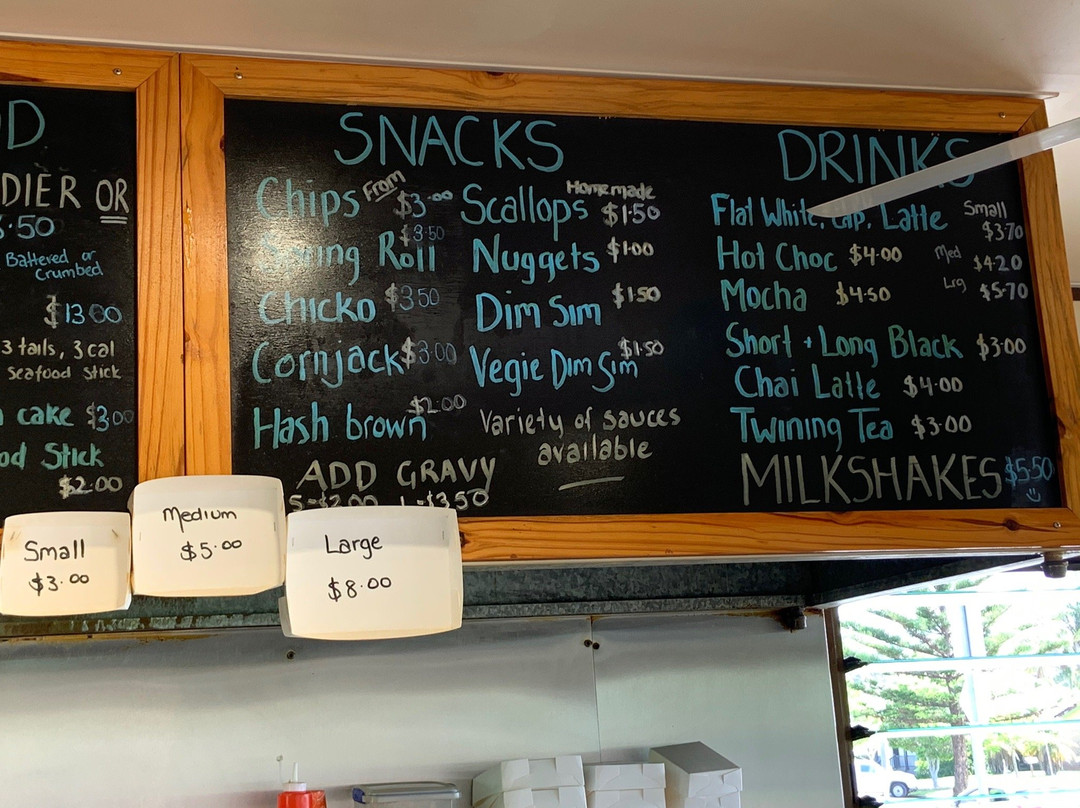 D
DIER OR
.50
Battered or
Crumbed
$13.00
3 tails, 3 cal
seafood stick
cake $3.00
od Stick
$2.00
SNACKS
Chips From $3.00
Spring Roll $3.50
Chicko $3.50
Cornjack $3.00
Hash brown $2.00
ADD GRAVY
S-$2.00 L-$3.50
Scallops Homemade $1.50
Nuggets $1.00
Dim Sim $1.50
Vegie Dim Sim $1.50
Variety of sauces
available
DRINKS
Flat White, Cap, Latte Small $3.70
Med $4.20
Lrg $5.70
Hot Choc $4.00
Mocha $4.50
Short + Long Black $3.00
Chai Latte $4.00
Twining Tea $3.00
MILKSHAKES $5.50
Small
$3.00
Medium
$5.00
Large
$8.00